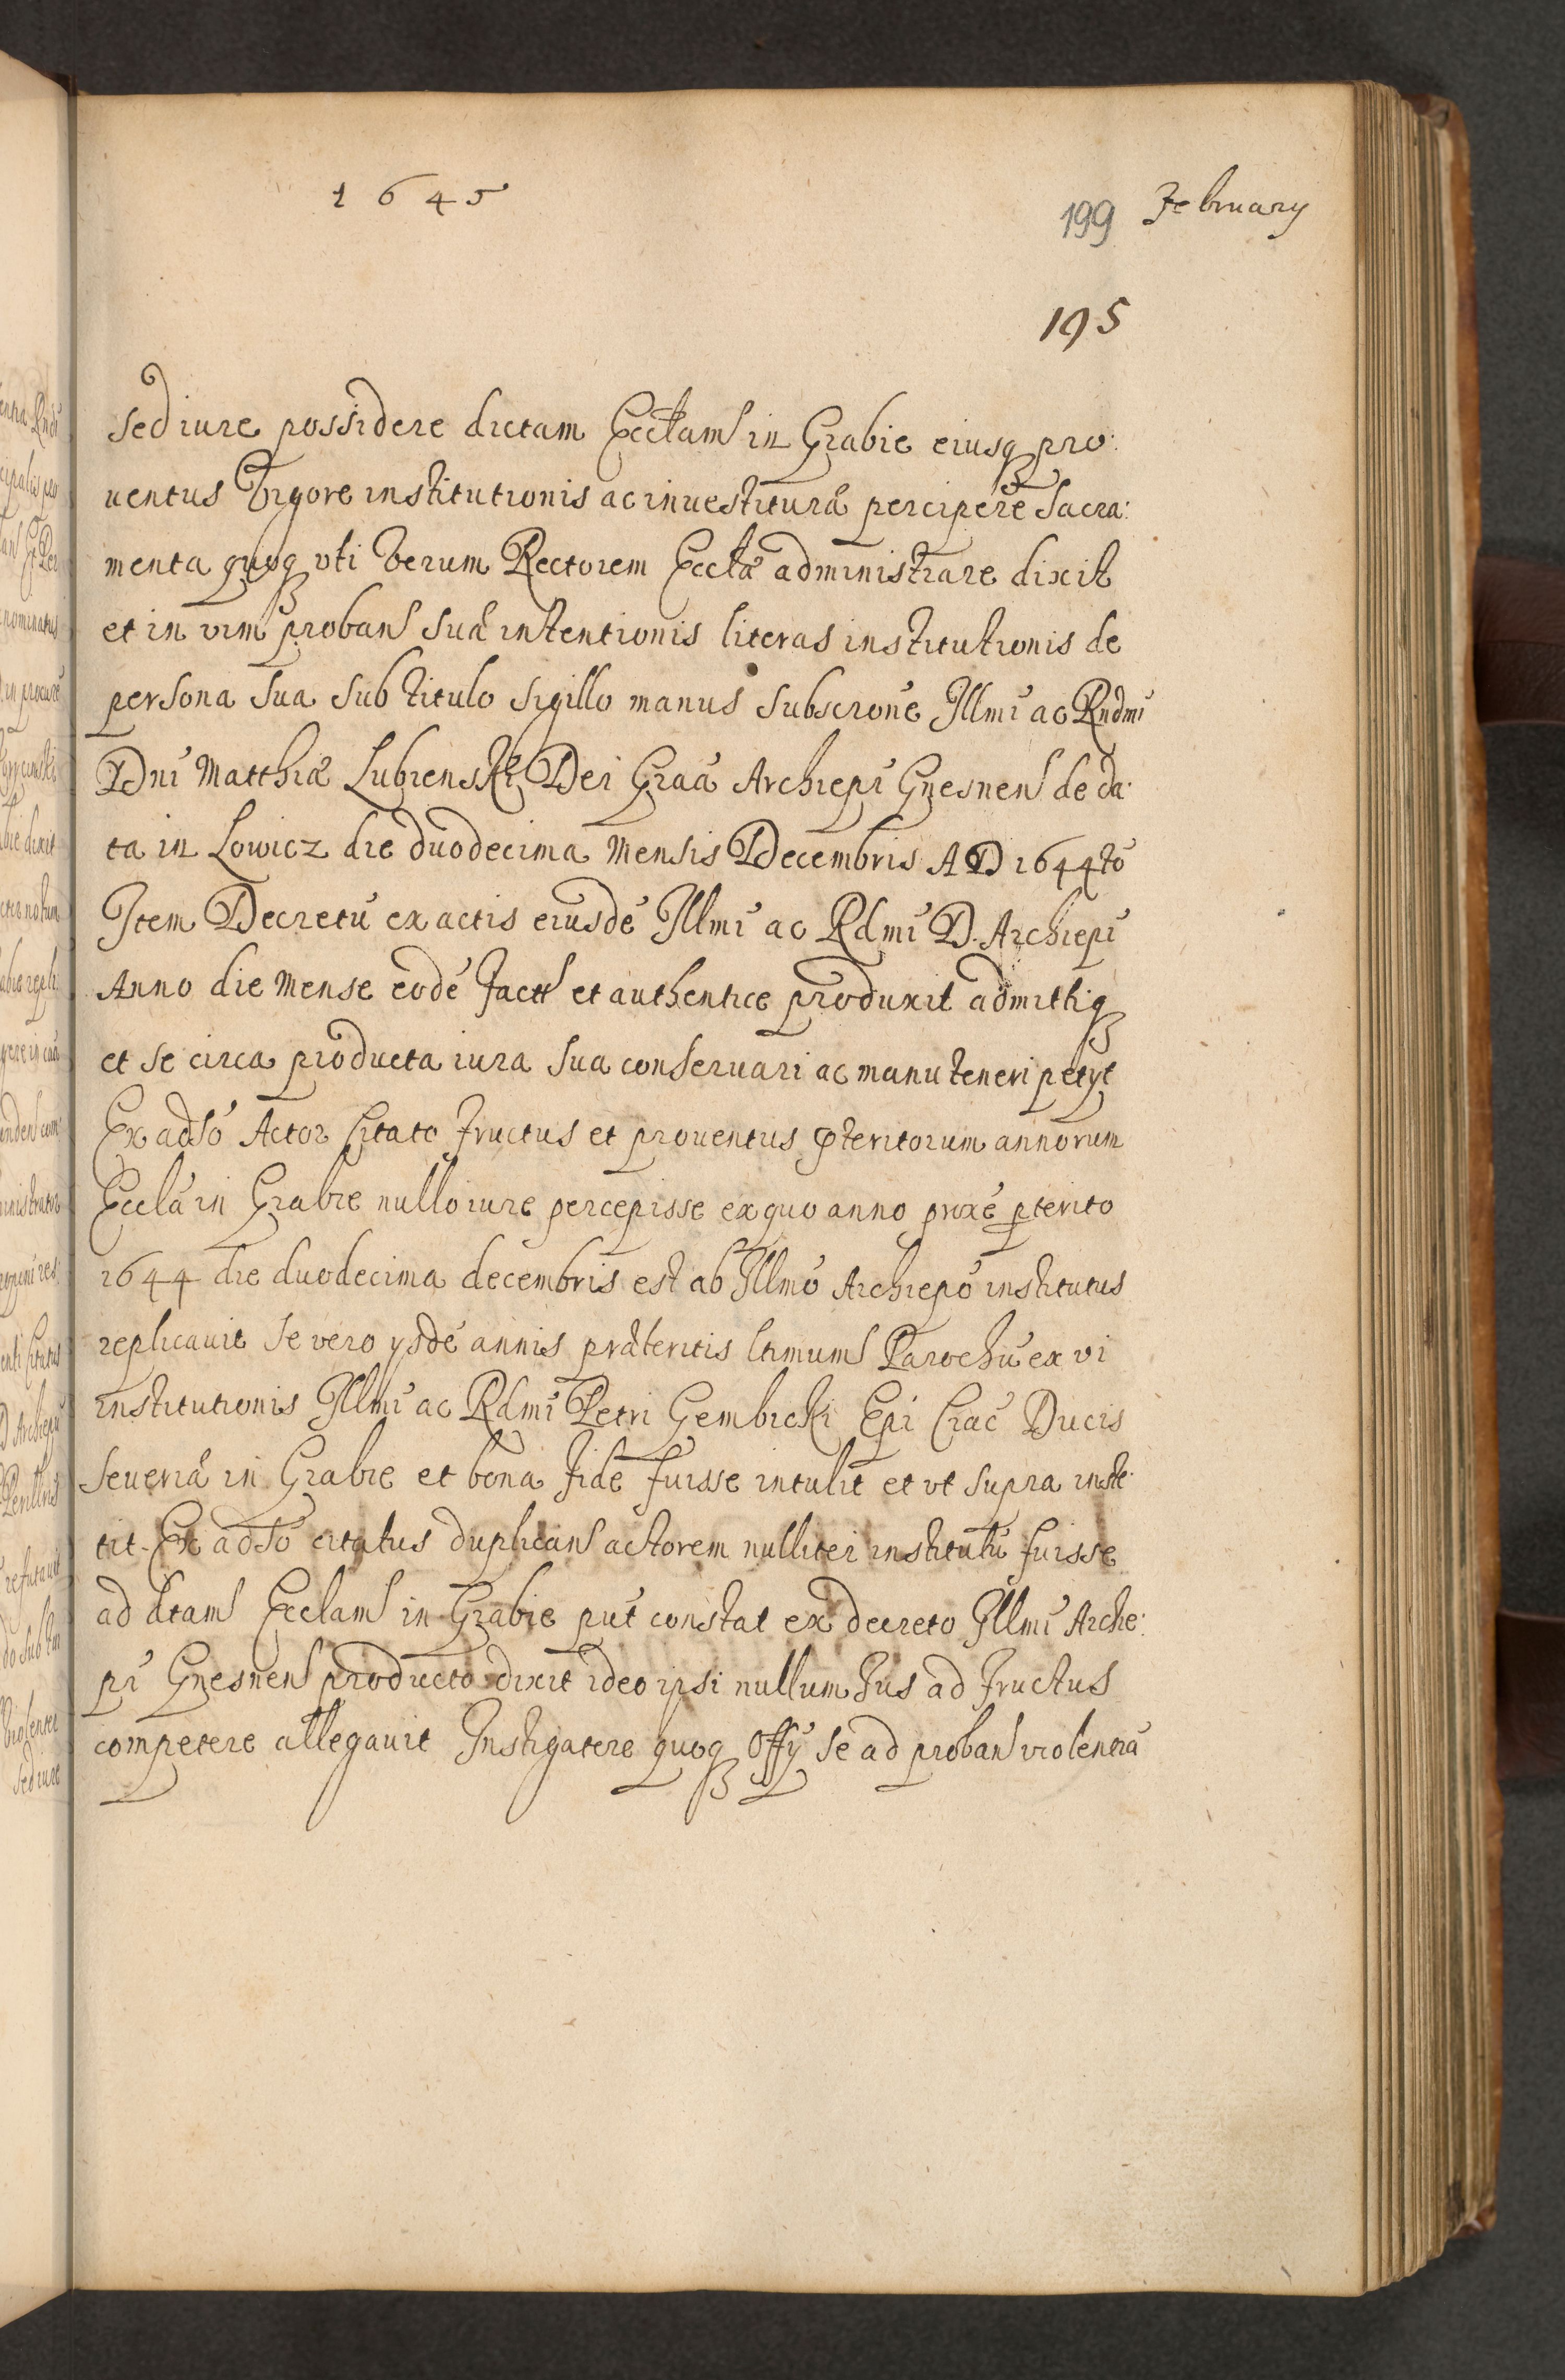 1645
199 February
195
sed iure possidere dictam Ecclam in Grabie eiusq pro:
uentus Vigore institutionis ac inuestituræ percipere Sacra:
menta quoq vti Verum Rectorem Ecclæ administrare dixit
et in vim proban suæ intentionis literas institutionis de
persona sua sub titulo sigillo manus subscrone Illmi ac Rndmi
Dni Matthiæ Lubienski Dei Graa Archiepi Gnesnen de da:
ta in Lowicz die duodecima Mensis Decembris A D 1644to
Item Decretu ex actis eiusde Illmi ac Rdmi D. Archiepi
Anno die Mense eode fact et authentice produxit admittiq
et se circa producta iura sua conseruari ac manuteneri petyt
Ex adso Actor Citato fructus et prouentus pteritorum annorum
Eccla in Grabie nullo iure percepisse ex quo anno proxe pterito
1644 die duodecima decembris est ab Illmo Archiepo institutus
replicauit se vero ysde annis præteritis ltimum Parochu ex vi
institutionis Illmi ac Rdmi Petri Gembicki Epi Crac Ducis
Seueriæ in Grabie et bona fide fuisse intulit et vt supra insti:
tit. Ex adso citatus duplican actorem nulliter institutu fuisse
ad dtam Ecclam in Grabie put constat ex decreto Illmi Archie:
pi Gnesnen producto dixit ideo ipsi nullum Jus ad fructus
competere allegauit Instigatore quoq Offy se ad proban violentia